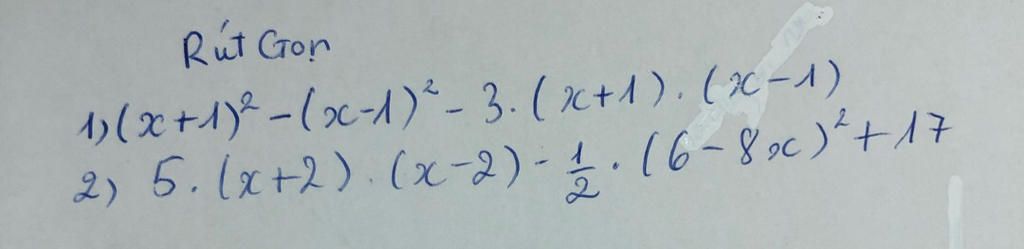 Rút Gọn
1) (x+1)² - (x-1)² - 3. (x+1). (x-1)
2) 5. (x+2). (x-2) - 1/2 . (6-8x)² + 17